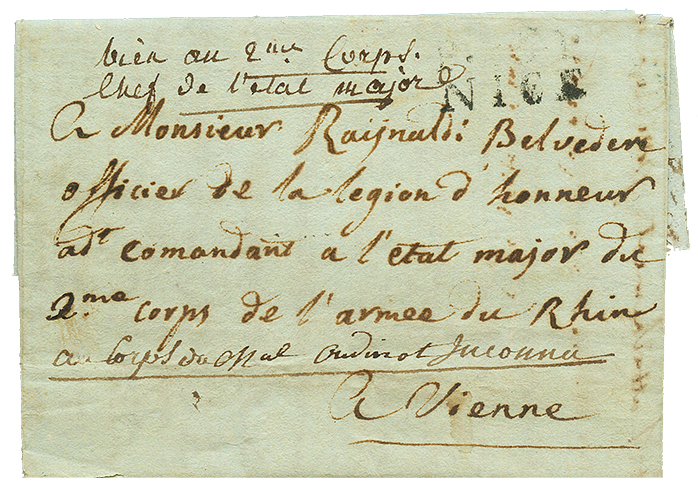 bien au 2me Corps.
Chef de l'état major
NICE
a Monsieur Raijnaldi Belvedere
officier de la legion d'honneur
adt comandant a l'état major du
2.me corps de l'armée du Rhin
au Corps du Mal Oudinot Inconnu
a Vienne